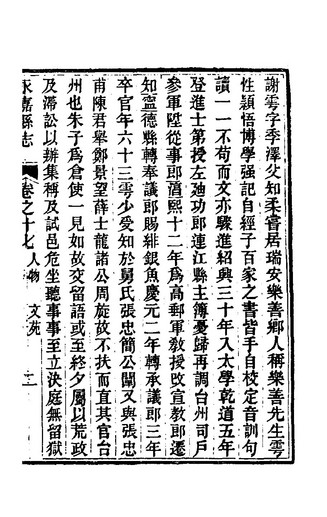 謝雩字季澤父知柔嘗居瑞安樂善鄉人稱樂善先生雩
性穎悟博學强記自經子百家之書皆手自校定音訓句
讀一一不苟而文亦驟進紹興三十年入太學乾道五年
登進士第授左廸功郎連江縣主簿憂歸再調台州司戸
參軍陞從事郎湻熙十二年爲高郵軍敎授改宣敎郎遷
知寧德縣轉奉議郎賜緋銀魚慶元二年轉承議郎三年
卒官年六十三雩少受知於舅氏張忠簡公闡又與張忠
甫陳君舉鄭景望薛士龍諸公周旋故不扶而直其官台
州也朱子爲倉使一見如故交留語或至終夕屬以荒政
及滯訟以辦集稱及試邑危坐聽事事至立決庭無留獄
永嘉縣志
卷之十七
人物
文苑